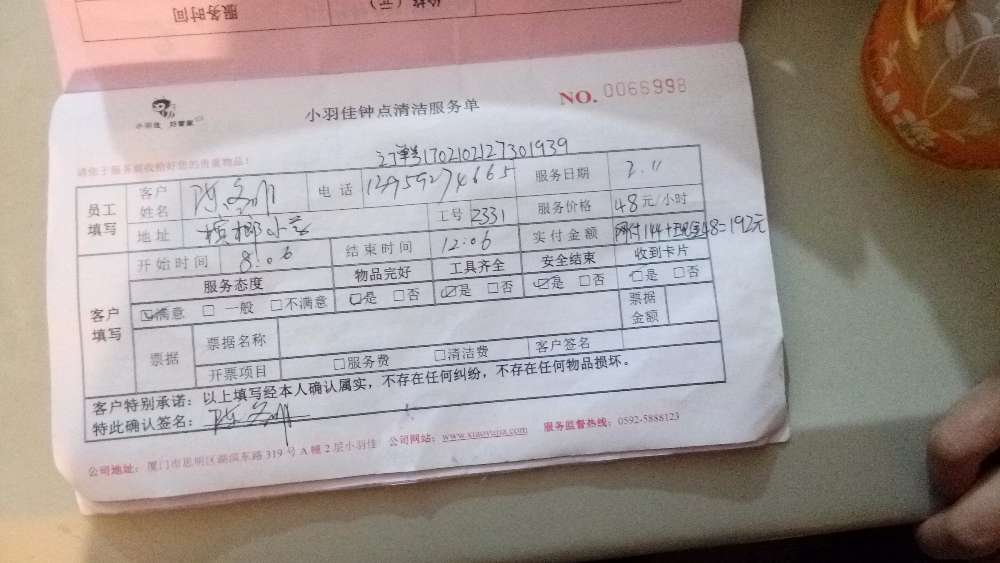 价格（元）
服务时间
小羽佳 好管家
小羽佳钟点清洁服务单
NO. 0066998
请你于服务前收拾好您的贵重物品！
订单号1702102127301939
员工填写
客户姓名
电话
服务日期 2.11
地址 槟榔小区
工号 2331
服务价格 48元/小时
开始时间 8:06
结束时间 12:06
实付金额 网付144+现金48=192元
客户填写
服务态度 物品完好 工具齐全 安全结束 收到卡片
☑满意 □一般 □不满意 ☑是 □否 ☑是 □否 ☑是 □否 □是 □否
票据
票据名称
票据金额
开票项目 □服务费 □清洁费 客户签名
客户特别承诺：以上填写经本人确认属实，不存在任何纠纷，不存在任何物品损坏。
特此确认签名：
公司地址：厦门市思明区湖滨东路319号A幢2层小羽佳 公司网站：www.xiaoyujia.com 服务监督热线：0592-5888123